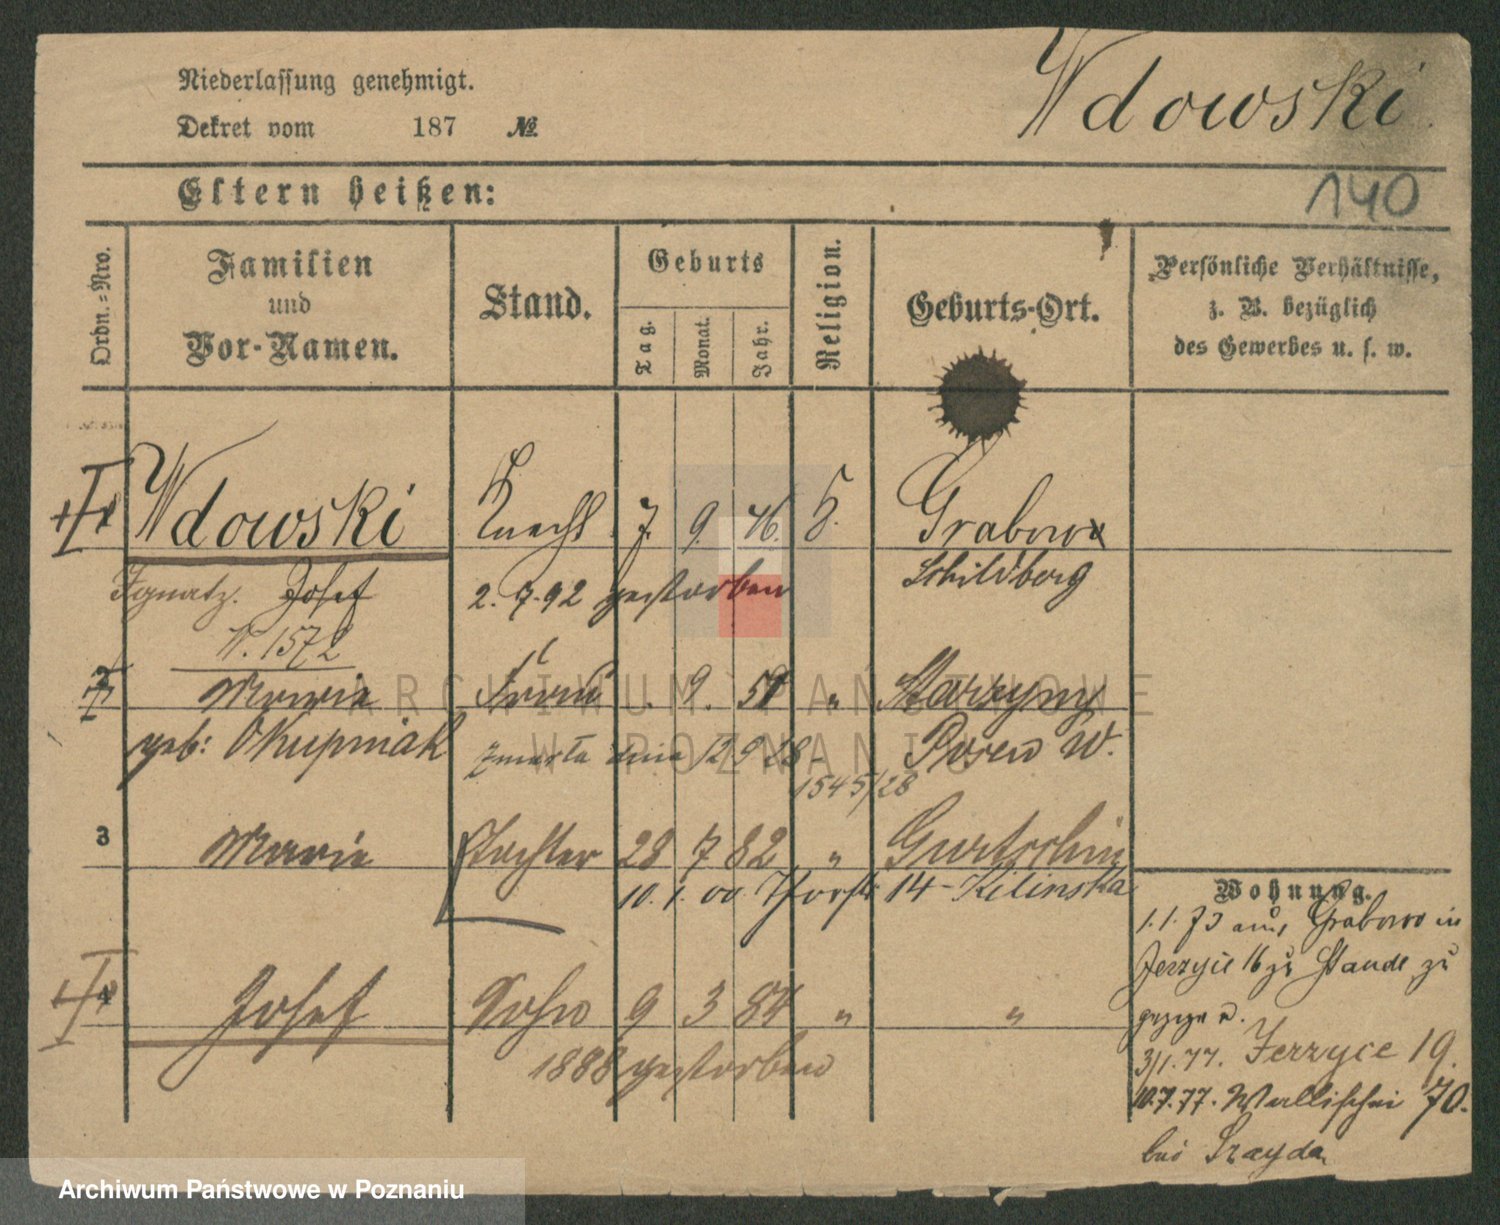 Niederlassung genehmigt.
Wdowski
Dekret vom 187 №
Eltern heißen:
140
Ordn.-Nro.
Familien und Vor-Namen.
Stand.
Geburts
Tag. Monat. Jahr.
Religion.
Geburts-Ort.
Persönliche Verhältnisse,
z. B. bezüglich
des Gewerbes u. s. w.
Wdowski Knecht 7. 9. 46. Grabowo
Ignatz. Josef 2. 7. 92 gestorben Schildberg
N. 1572
2 Marie Frau 9. „
geb: Okupniak zmarła dnia 12 9 28 Posen W.
1545/28
3 Marie Tochter 28 7 82 „ Gurtschin
10. 1. 00. 14 - Kilinska
4 Josef Sohn 9 3 84 „ „
1888 gestorben
Wohnung.
1. 1. aus Grabowo in
Jerzyce 16 zu
3/1. 77. Jerzyce 19.
10. 7. 77. Wallischei 70.
bei
ARCHIWUM PAŃSTWOWE
W POZNANIU
Archiwum Państwowe w Poznaniu